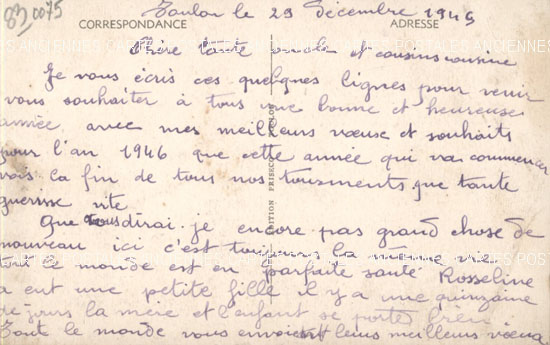 83 0075
Toulon le 29 Décembre 1945
CORRESPONDANCE ADRESSE
Chère tante oncle et cousins cousine
Je vous écris ces quelques lignes pour venir
vous souhaiter à tous une bonne et heureuse
année avec mes meilleurs vœux et souhaits
pour l'an 1946 que cette année qui va commencer
vois la fin de tous nos tourments que tante
guerisse vite
Que vous dirai-je encore pas grand chose de
nouveau ici c'est toujours la même
tout le monde est en parfaite santé Rosseline
a eut une petite fille il y a une quinzaine
de jours la mère et l'enfant se portes bien
Toute le monde vous envoient leurs meilleurs vœux